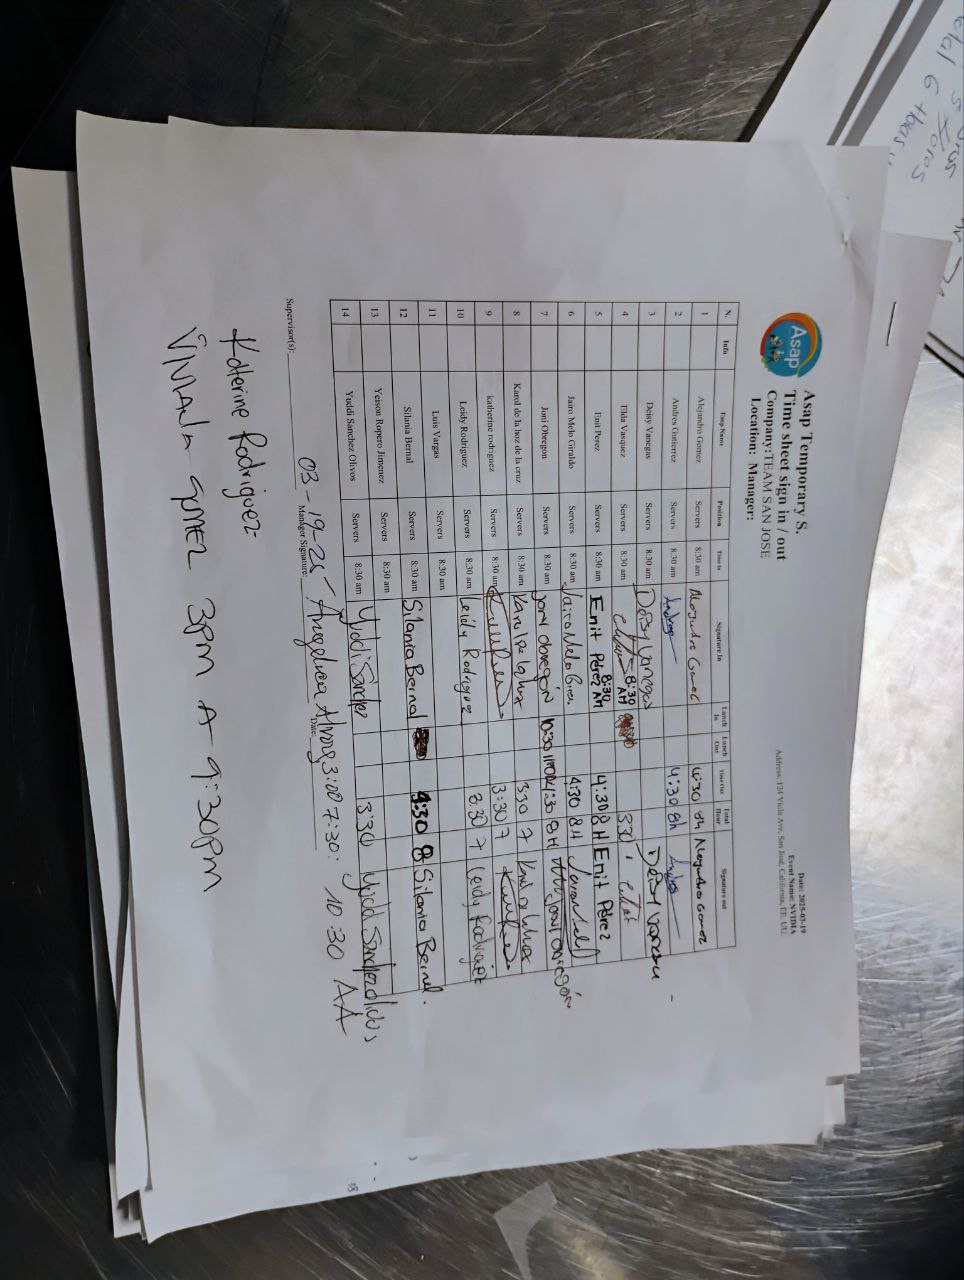 Asap
Asap Temporary S.
Time sheet sign in / out
Company:TEAM SAN JOSE
Location: Manager:
Date: 2025-03-19
Event Name: NVIDIA
Address: 124 Viola Ave, San José, California, EE. UU.
N. Info Emp Name Position Time In Signature In Lunch In Lunch Out Time Out Total Hour Signature out
1 Alejandro Gomez Servers 8:30 am 4:30 8h
2 Andres Gutierrez Servers 8:30 am 4:30 8h
3 Deisy Vanegas Servers 8:30 am Deisy Vanegas
4 Elda Vasquez Servers 8:30 am 8:30 AM 3:30
5 Enit Perez Servers 8:30 am Enit Pérez 8:30 AM 4:30 8 H Enit Pérez
6 Jairo Melo Giraldo Servers 8:30 am Jairo Melo 4:30 8H
7 Joni Obregon Servers 8:30 am Joni obregón 10:30 4:30 8 H Joni obregón
8 Karol de la hoz de la cruz Servers 8:30 am 330 7
9 katherine rodriguez Servers 8:30 am 3:30 7
10 Leidy Rodriguez Servers 8:30 am Leidy Rodriguez 3:30 7 Leidy Rodriguez
11 Luis Vargas Servers 8:30 am
12 Silania Bernal Servers 8:30 am Silania Bernal 4:30 8 Silania Bernal.
13 Yeison Ropero Jimenez Servers 8:30 am
14 Yuddi Sanchez Olivos Servers 8:30 am 3:30
Supervisor(s): Manager Signature: Date:
03-19-25 Angelica 3:00 7:30: 10:30 AA
Katterine Rodriguez
Viviana gomez 3pm A 9:30pm